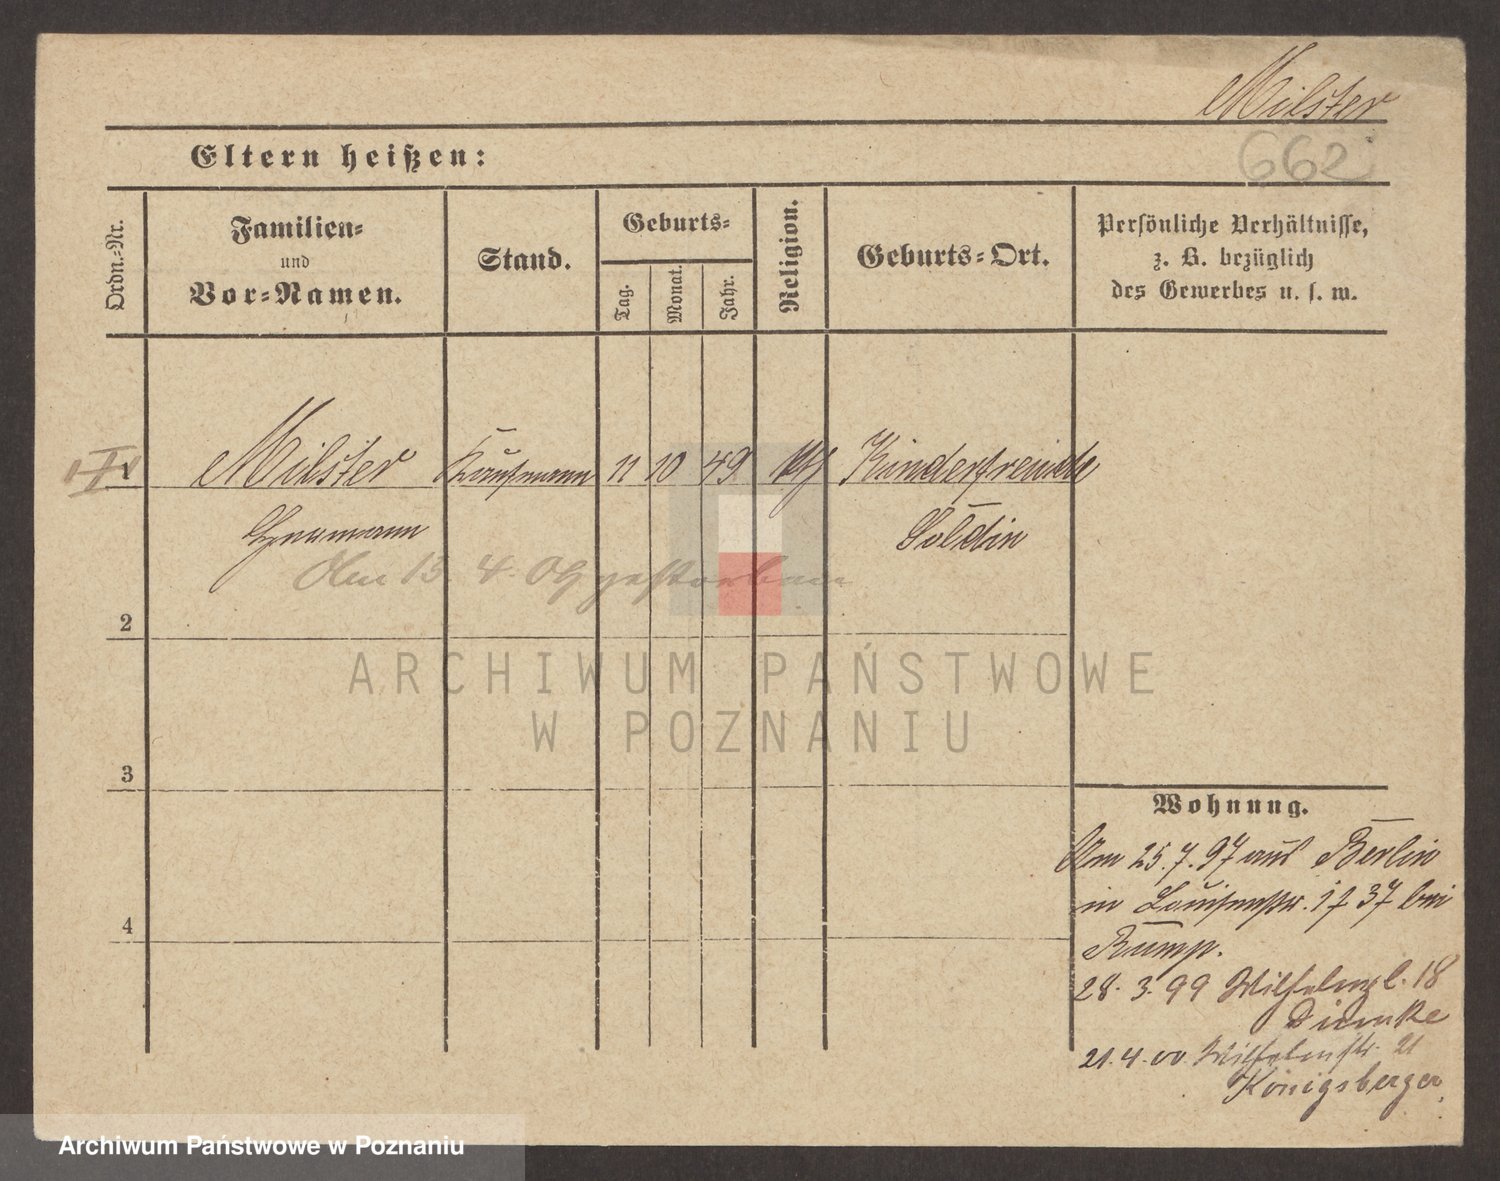 Milster
662
Eltern heißen:
Ordn.-Nr.
Familien-
und
Vor-Namen.
Stand.
Geburts-
Tag.
Monat.
Jahr.
Religion.
Geburts-Ort.
Persönliche Verhältnisse,
z. B. bezüglich
des Gewerbes u. s. w.
1 Milster Kaufmann 11 10 49 Kinderfreude
Herrmann Soldin
Am 15. 4. 09 gestorben
2
3
4
Wohnung.
Am 25.7.97 aus Berlin
in Louisenstr. 17 37 bei
Rump.
28. 3. 99 Wilhelmpl. 18
Diemke
21.4.00 Wilhelmstr. 21
Königsberger
ARCHIWUM PAŃSTWOWE
W POZNANIU
Archiwum Państwowe w Poznaniu